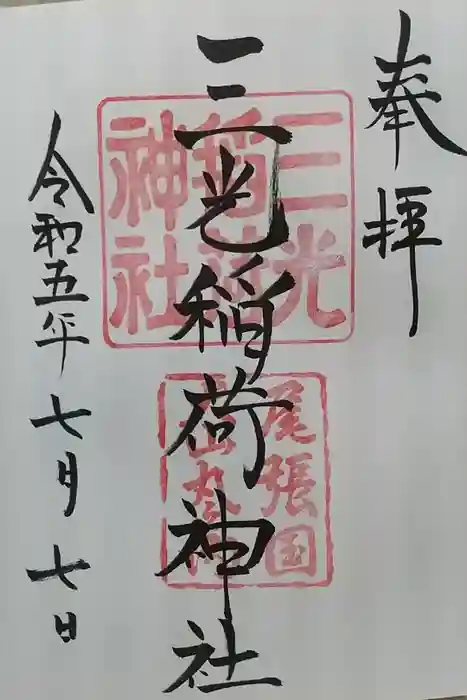 奉拝
三光稲荷神社
三光
稲荷
神社
尾張国
令和五年七月七日